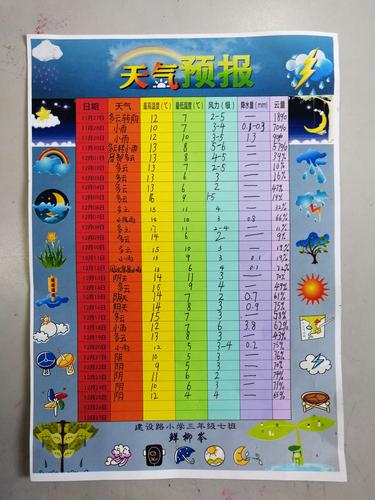 天气预报
日期 天气 最高温度(℃) 最低温度(℃) 风力(级) 降水量(mm) 云量
11月27日 多云转阴 12 7 2-5 — 18%
11月28日 小雨 10 7 3-4 0.1-0.3 70%
11月29日 小雨 13 10 3-4 1.3
11月30日 13 8 5-6 — 57%
12月01日 13 8 4-5 — 39%
12月02日 多云 13 7 2-5 —
12月03日 多云 13 6 3 — 16%
12月04日 多云 13 6 2 — 47%
12月05日 9 —
12月06日 多云 —
12月07日 小雨 66%
12月08日 多云 17 11 2-4 — 11%
12月09日 多云 14 6 2 —
12月10日 多云 10 3 —
12月11日 小雨 13 9 3 0.1 19%
12月12日 13 6 4 0.1
12月13日 阴天 14 11 3 —
12月14日 多云 14 8 2 —
12月15日 阴天 14 7 2 0.7 61%
12月16日 阴天 14 8 3 0.9 75%
12月17日 多云 15 8 3 — 58%
12月18日 小雨 12 7 6 3.8 62%
12月19日 多云 13 8 3 — 43%
12月20日 小雨 12 5 3-4 0.2 75%
12月21日 阴 10 5 3 — 76%
12月22日 阴 9 5 3 —
12月23日 阴 11 6 2 — 74%
12月24日 阴 10 6 3 — 71%
12月25日 阴 12 4 4 — 65%
12月26日
12月27日
建设路小学三年级七班
鲜柳岑